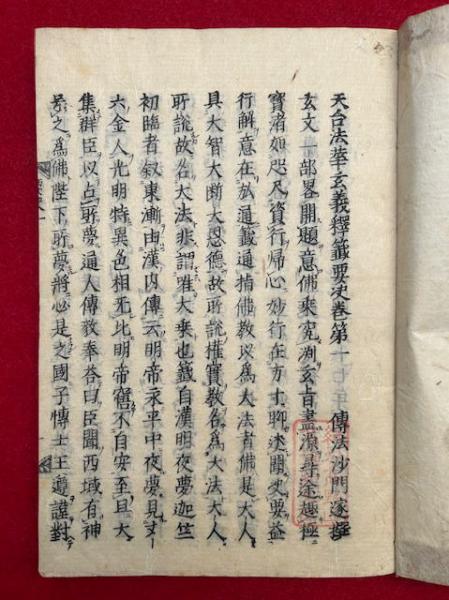 天台法華玄義釋籤要决卷第 傳法沙門邃撰
玄文一部畧開題意佛乘究測玄旨盡源尋途趣極
寶渚如咫尺資行歸心妙行在方寸聊述關文要益
行解意在於通籤通指佛教以為大法者佛是大人
具大智大斷大恩德故所說權實教名為大法大人
所說故名大法非謂唯大乗也籤自漢明夜夢迦竺
初臨者叙東漸由漢内傳云明帝永平中夜夢見丈
六金人光明特異色相无比明帝寤不自安至旦大
集群臣以占所夢通人傳毅奉答曰臣聞西域有神
号之為佛陛下所夢將必是之國子博士王遵謹對